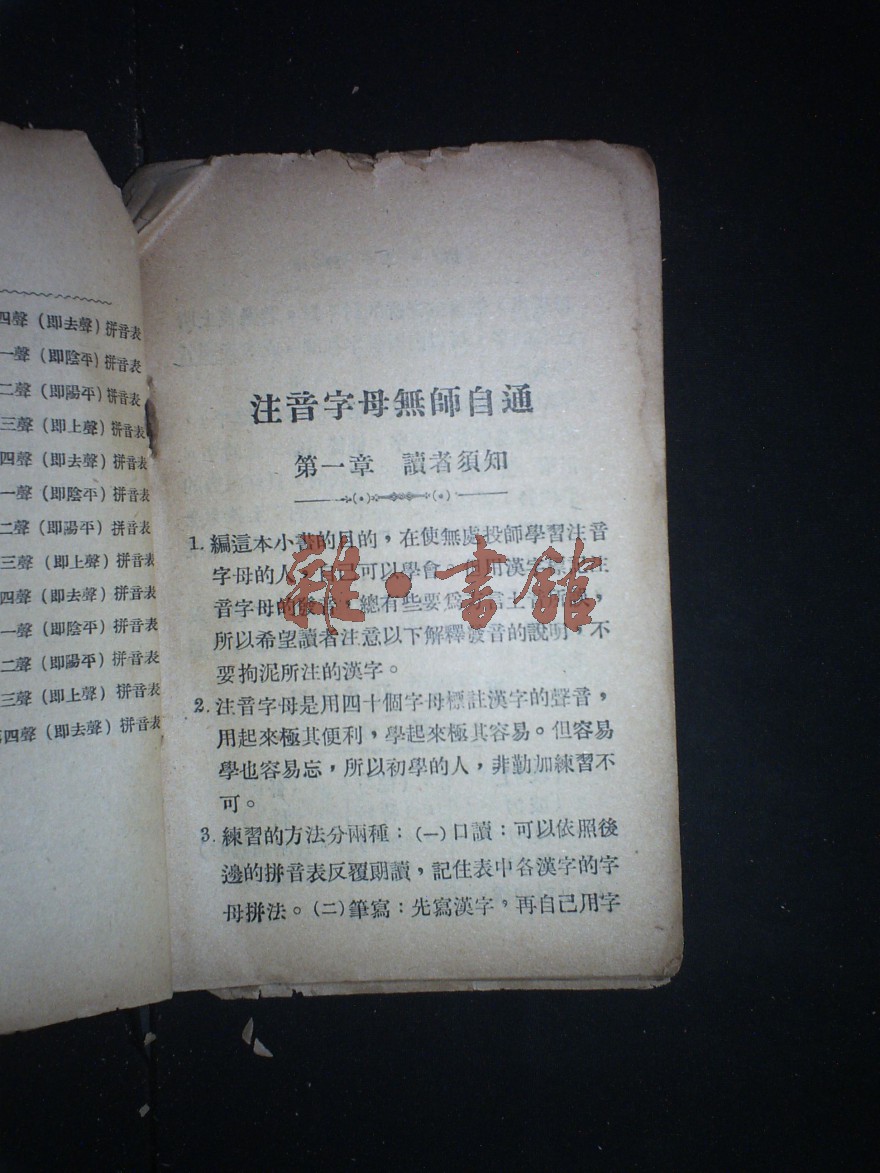 四聲（即去聲）拼音表
一聲（即陰平）拼音表
二聲（即陽平）拼音表
三聲（即上聲）拼音表
四聲（即去聲）拼音表
一聲（即陰平）拼音表
二聲（即陽平）拼音表
三聲（即上聲）拼音表
四聲（即去聲）拼音表
一聲（即陰平）拼音表
二聲（即陽平）拼音表
三聲（即上聲）拼音表
四聲（即去聲）拼音表
注音字母無師自通
第一章 讀者須知
1. 編這本小書的目的，在使無處投師學習注音
字母的人，自己可以學會。但用漢字標註注
音字母的發音，總有些要爲土音所誤，
所以希望讀者注意以下解釋發音的說明，不
要拘泥所注的漢字。
2. 注音字母是用四十個字母標註漢字的聲音，
用起來極其便利，學起來極其容易。但容易
學也容易忘，所以初學的人，非勤加練習不
可。
3. 練習的方法分兩種：（一）口讀：可以依照後
邊的拼音表反覆朗讀，記住表中各漢字的字
母拼法。（二）筆寫：先寫漢字，再自己用字
雜·書館